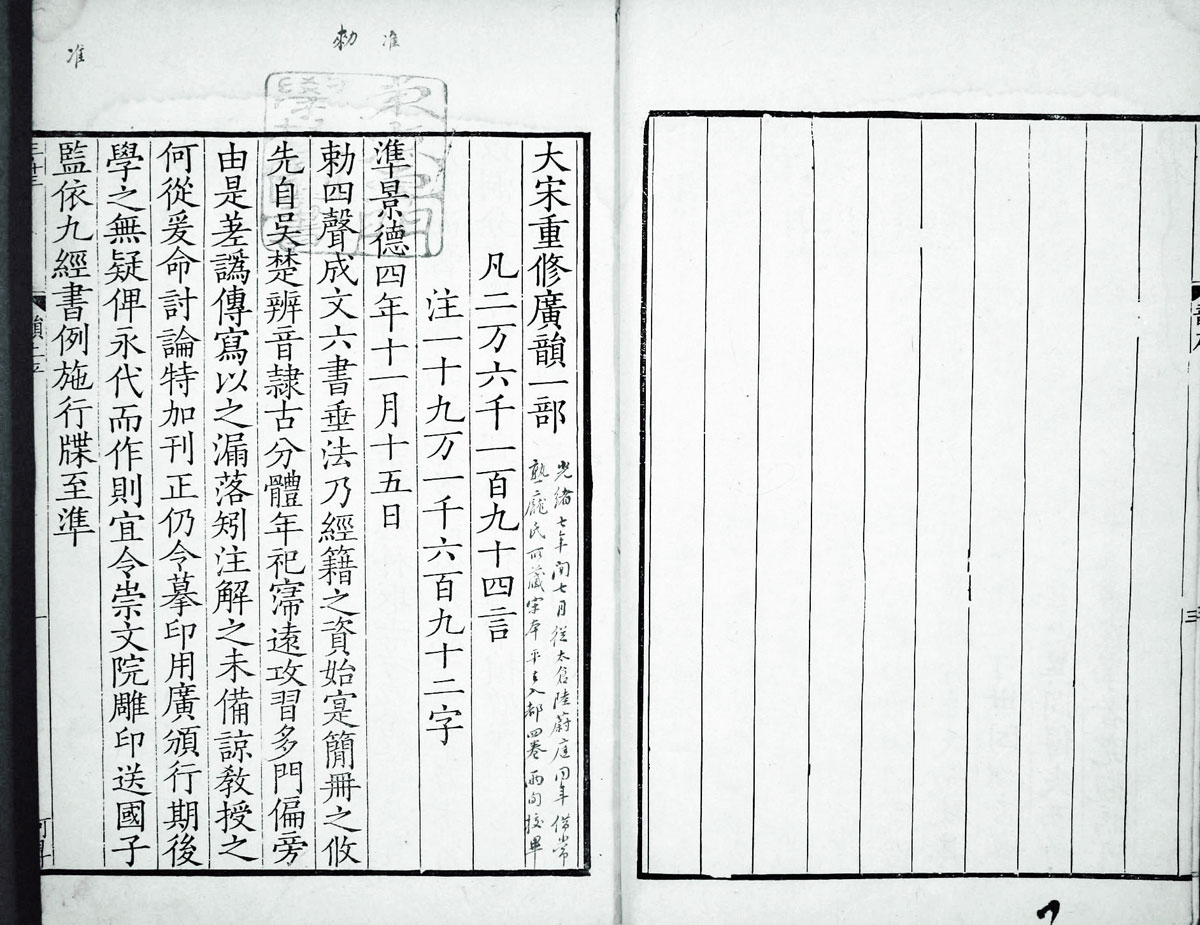 大宋重修廣韻一部
光緒七年閏七月從太倉陸蔚庭同年借常
熟龐氏所藏宋本平上入都四卷兩旬校畢
凡二万六千一百九十四言
注一十九万一千六百九十二字
準景德四年十一月十五日
勅四聲成文六書垂法乃經籍之資始寔簡冊之攸
先自吳楚辨音隷古分體年祀寖遠攻習多門偏旁
由是差譌傳寫以之漏落矧注解之未備諒敎授之
何從爰命討論特加刊正仍令摹印用廣頒行期後
學之無疑俾永代而作則宜令崇文院雕印送國子
監依九經書例施行牒至準
准
勅
准